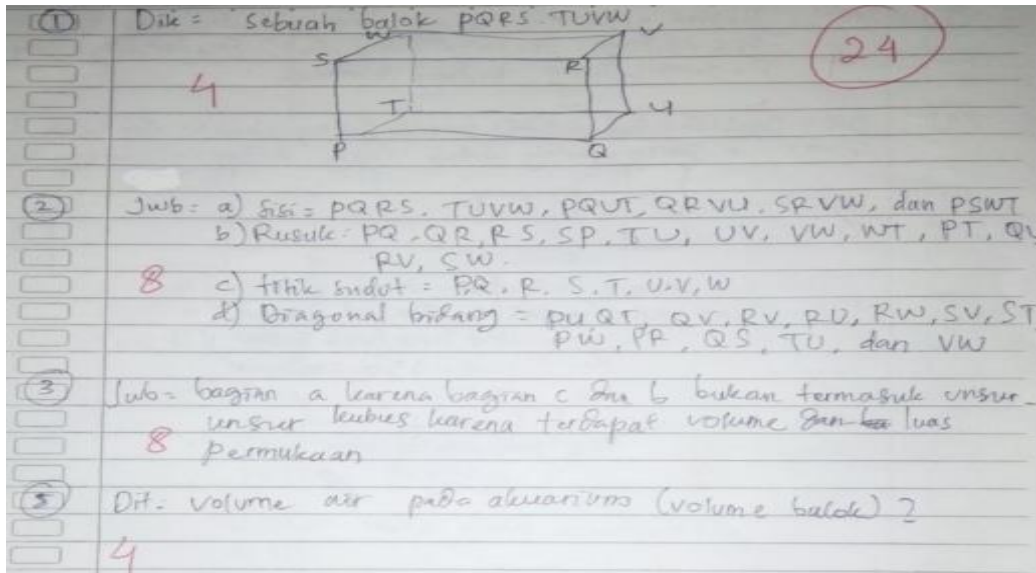 ① Dik = Sebuah balok PQRS.TUVW
24
W V
S R
4
T U
P Q
② Jwb = a) Sisi = PQRS, TUVW, PQUT, QRVU, SRVW, dan PSWT
b) Rusuk = PQ, QR, RS, SP, TU, UV, VW, WT, PT, QU
RV, SW.
8 c) titik sudut = P,Q, R, S, T, U, V, W
d) Diagonal bidang = PU, QT, QV, RV, RU, RW, SV, ST
PW, PR, QS, TU, dan VW
③ Jwb = bagian a karena bagian c dan b bukan termasuk unsur-
unsur kubus karena terdapat volume dan luas
8 permukaan
⑤ Dit = volume air pada akuarium (volume balok) ?
4